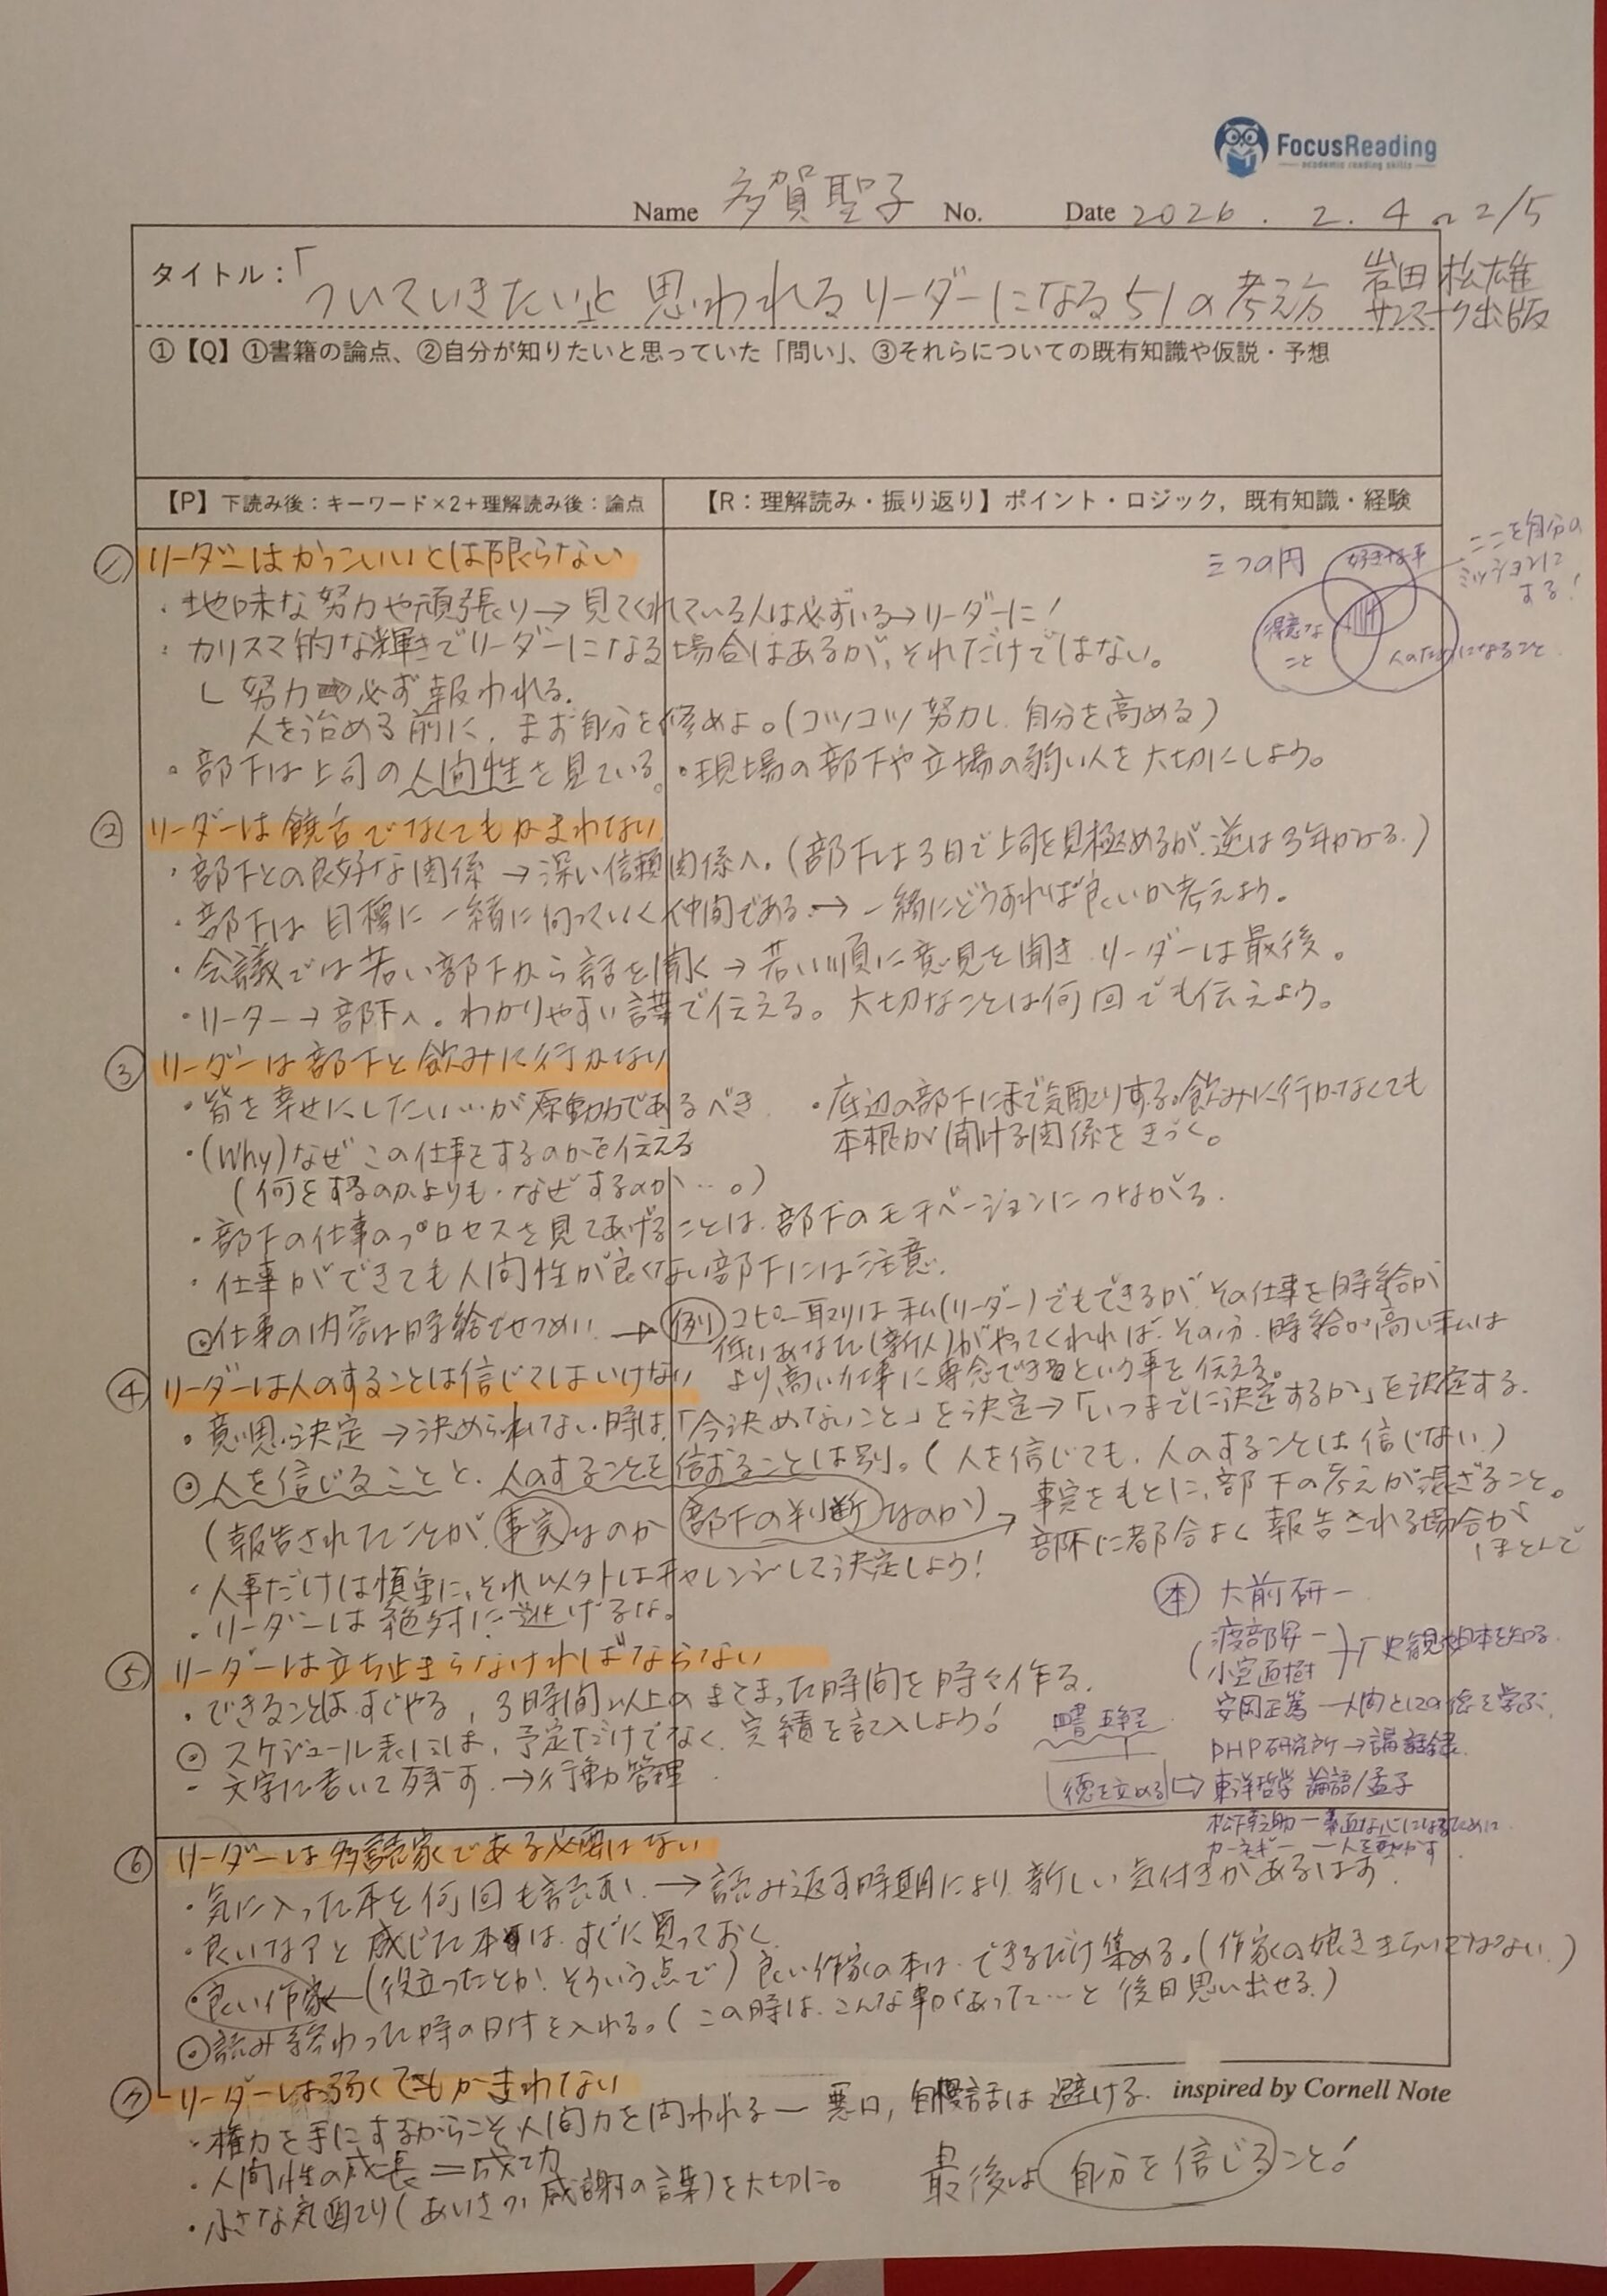 FocusReading
academic reading skills
Name 多賀聖子 No. Date 2026. 2. 4 〜 2/5
タイトル:「ついていきたい」と思われるリーダーになる51の考え方 岩田松雄
サンマーク出版
①【Q】①書籍の論点、②自分が知りたいと思っていた「問い」、③それらについての既有知識や仮説・予想
【P】下読み後:キーワード×2+理解読み後:論点
【R:理解読み・振り返り】ポイント・ロジック,既有知識・経験
三つの円
好きな事
得意なこと
人のためになること
ここを自分の
ミッションに
する!
① リーダーはかっこいいとは限らない
・地味な努力や頑張り→見てくれている人は必ずいる→リーダーに!
・カリスマ的な輝きでリーダーになる場合はあるが、それだけではない。
努力→必ず報われる。
人を治める前に、まず自分を修めよ。(コツコツ努力し、自分を高める)
・部下は上司の人間性を見ている。・現場の部下や立場の弱い人を大切にしよう。
② リーダーは饒舌でなくてもかまわない
・部下との良好な関係→深い信頼関係へ。(部下は3日で上司を見極めるが、逆は3年かかる。)
・部下は目標に一緒に向っていく仲間である→一緒にどうすれば良いか考えよう。
・会議では若い部下から話を聞く→若い順に意見を聞き、リーダーは最後。
・リーダー→部下へ。わかりやすい言葉で伝える。大切なことは何回でも伝えよう。
③ リーダーは部下と飲みに行かない
・皆を幸せにしたい…が原動力であるべき
・底辺の部下にまで気配りする。飲みに行かなくても
本根が聞ける関係をきづく。
・(Why)なぜこの仕事をするのかを伝える
(何をするのかよりも、なぜするのか…。)
・部下の仕事のプロセスを見てあげることは、部下のモチベーションにつながる。
・仕事ができても人間性が良くない部下には注意。
◎仕事の内容は時給でせつめい。→(例)コピー取りは私(リーダー)でもできるが、その仕事を時給が
低いあなた(新人)がやってくれれば、その分、時給が高い私は
より高い仕事に専念できるという事を伝える。
④ リーダーは人のすることは信じてはいけない
・意思決定→決められない時は、「今決めないこと」を決定→「いつまでに決定するか」を決定する。
◎人を信じることと、人のすることを信ずることは別。(人を信じても、人のすることは信じない。)
(報告されたことが、事実なのか、部下の判断なのか)→事実をもとに、部下の考えが混ざること。
部下に都合よく報告される場合がほとんど
・人事だけは慎重に、それ以外はチャレンジして決定しよう!
・リーダーは絶対に逃げるな。
⑤ リーダーは立ち止まらなければならない
・できることはすぐやる、3時間以上のまとまった時間を時々作る。
◎スケジュール表には、予定だけでなく、実績を記入しよう!
- 文字に書いて残す。→行動管理
(本) 大前研一
渡部昇一
小室直樹
安岡正篤 — 人間としての徳を学ぶ
PHP研究所→講話録
四書五経
徳を立める→東洋哲学 論語/孟子
松下幸之助 — 素直な心になるために
カーネギー — 人を動かす
⑥ リーダーは多読家である必要はない
・気に入った本を何回も読む。→読み返す時期により、新しい気付きがあるはず。
・良いなアと感じた本は、すぐに買っておく
・良い作家←(役立ったとか、そういう点で) 良い作家の本は、できるだけ集める。(作家の好ききらいではない。)
◎読み終わった時の日付を入れる。(この時は、こんな事があった…と後日思い出せる。)
⑦ リーダーは弱くてもかまわない
・権力を手にするからこそ人間力を問われる — 悪口、自慢話は避ける。
inspired by Cornell Note
・人間性の成長=
・小さな気配り(あいさつ、感謝の言葉)を大切に。
最後は自分を信じること!